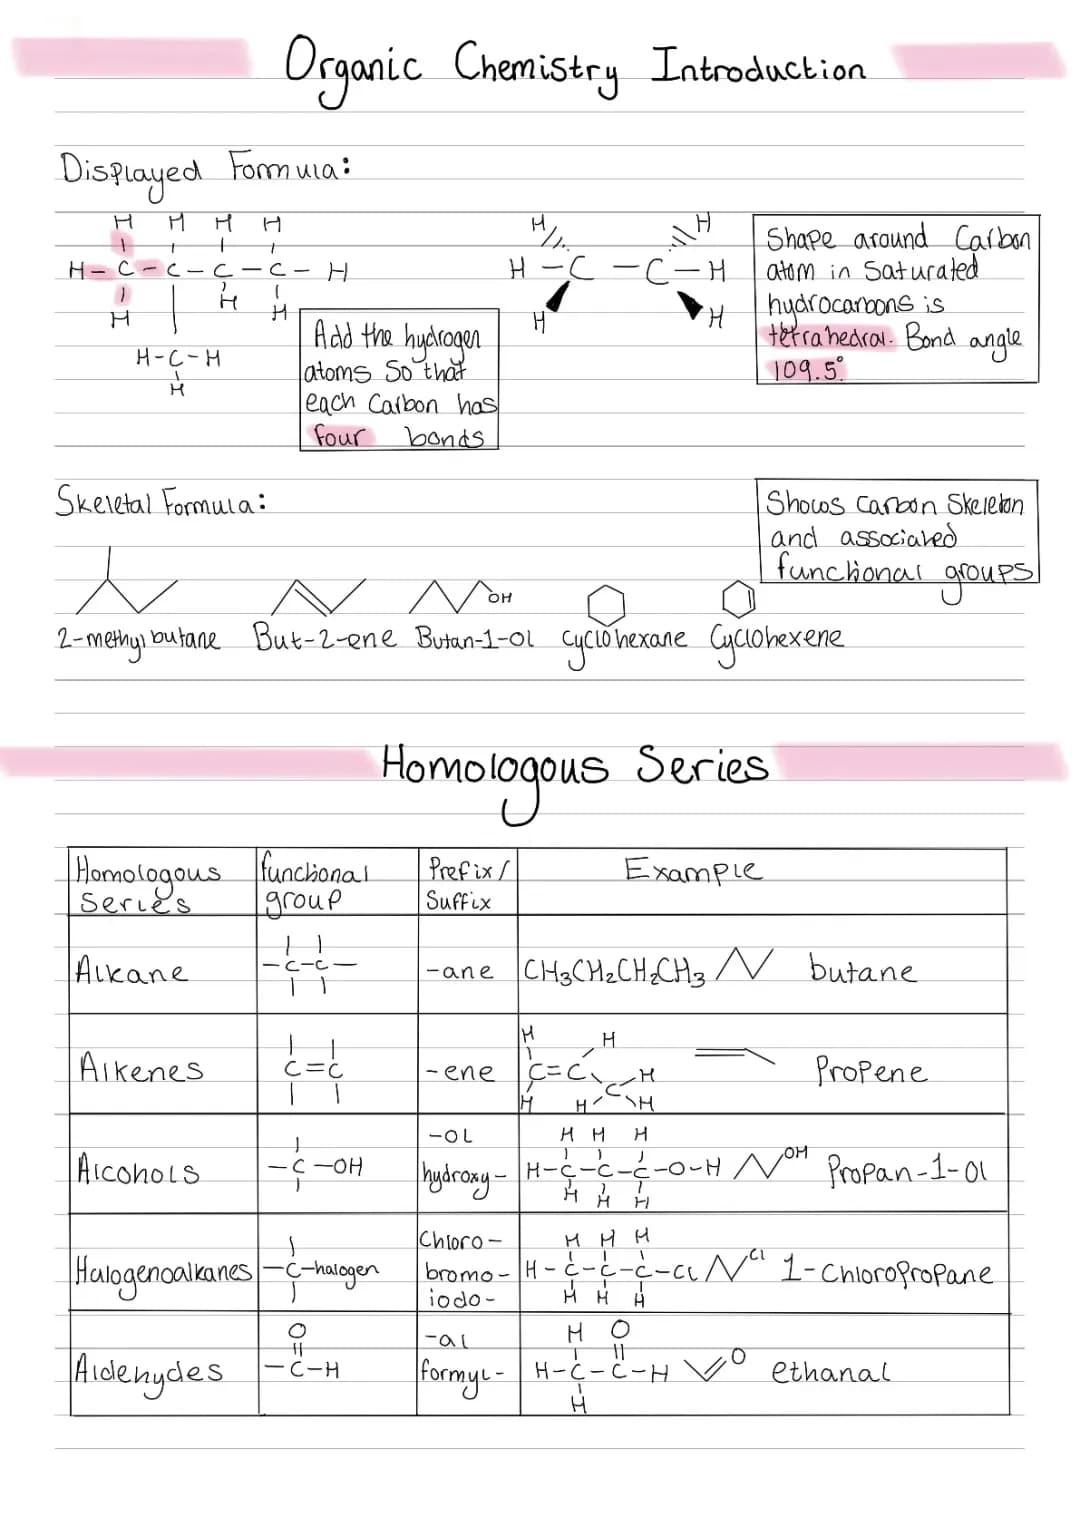 Organic Chemistry Introduction
Displayed Formula:
H H H H
H-C-C-C-C-H
H H H
H-C-H
H
Add the hydrogen
atoms so that
each Carbon has
four bonds
H H
H-C-C-H
H H
Shape around Carbon
atom in Saturated
hydrocarbons is
tetrahedral. Bond angle
109.5°
Skeletal Formula:
Shows Carbon Skeleton
and associated
functional groups
OH
2-methyl butane But-2-ene Butan-1-ol Cyclohexane Cyclohexene
Homologous Series
Homologous Series
functional group
Prefix/ Suffix
Example
Alkane
-C-C-
-ane
CH₃CH₂CH₂CH₃
butane
Alkenes
C=C
-ene
H H
C=C H
H C
H H
Propene
Alcohols
-C-OH
-OL
hydroxy-
H H H
H-C-C-C-O-H
H H H
OH
Propan-1-ol
Halogenoalkanes
-C-halogen
Chloro-
bromo-
iodo-
H H H
H-C-C-C-Cl
H H H
Cl
1-Chloropropane
Aldehydes
O
-C-H
-al
formyl-
H O
H-C-C-H
H
O
ethanal